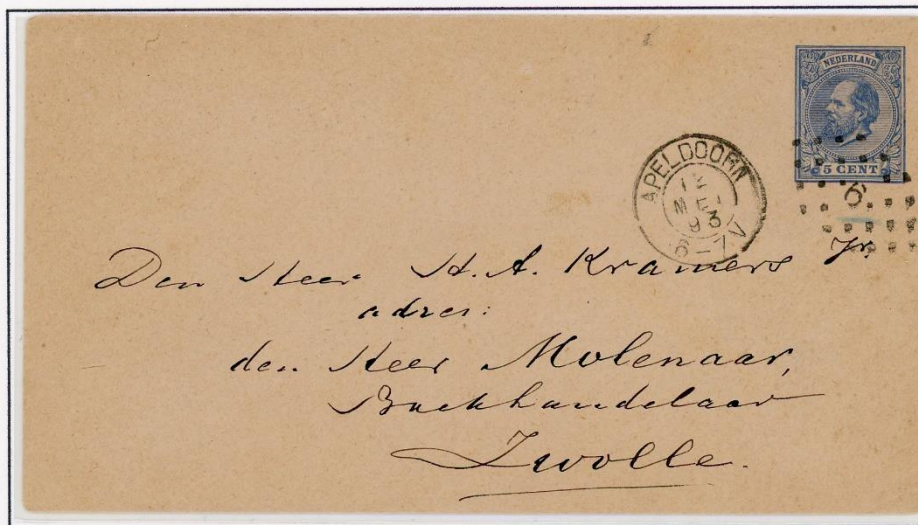 NEDERLAND
5 CENT
APELDOORN
12
MEI
93
6-7V
6.
Den Heer H. A. Kramers Jr.
adres:
den Heer Molenaar,
Boekhandelaar
Zwolle.